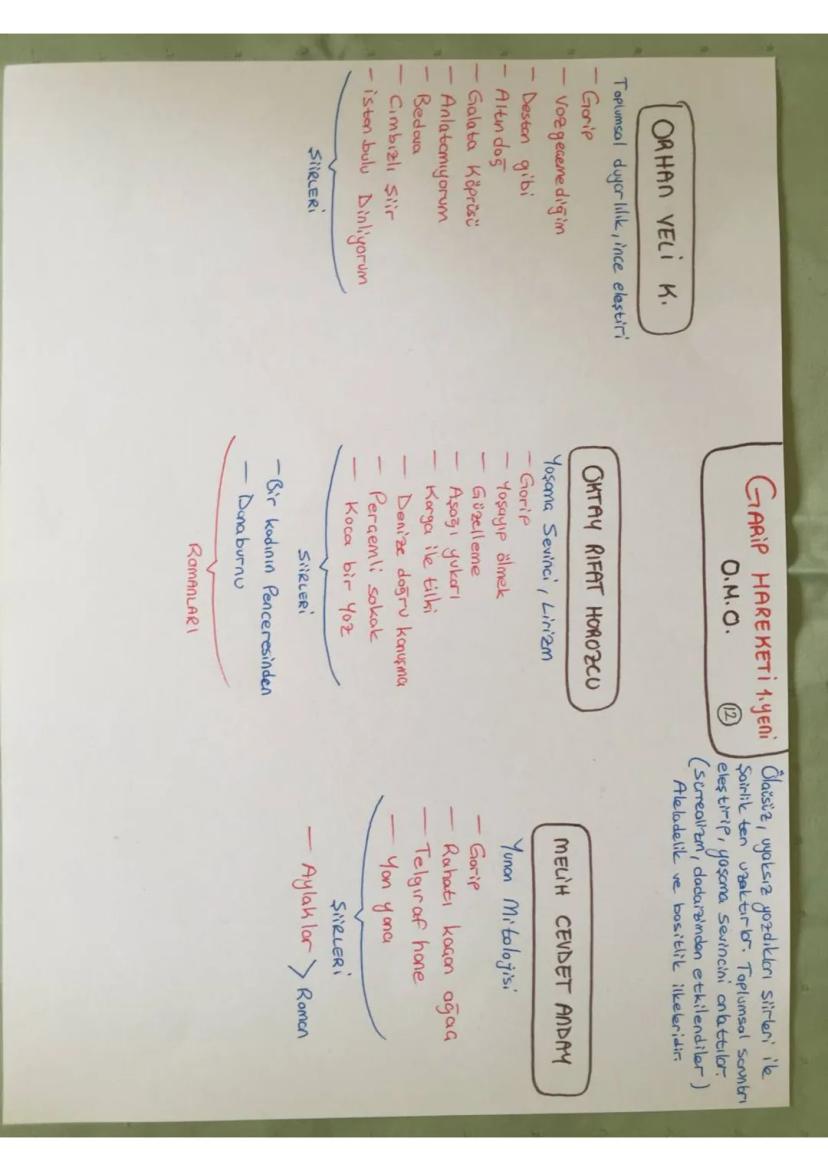 GARİP HAREKETİ 1.yeni
O.M.O.
12
Ölçüsüz, uyaksız yazdıkları şiirleri ile
şairlikten uzaktırlar. Toplumsal sorunları
eleştirip, yaşama sevincini anlattılar.
(sürrealizm, dadaizmden etkilendiler)
Aleladelik ve basitlik ilkeleridir.
ORHAN VELİ K.
Toplumsal duyarlılık, ince eleştiri
- Garip
- Vazgeçemediğim
- Destan gibi
- Altındağ
- Galata Köprüsü
- Anlatamıyorum
- Bedava
- Cımbızlı şiir
- İstanbulu Dinliyorum
ŞİİRLERİ
OKTAY RIFAT HOROZCU
Yaşama Sevinci, Lirizm
- Garip
- Yaşayıp ölmek
- Güzelleme
- Aşağı yukarı
- Karga ile tilki
- Denize doğru konuşma
- Perçemli sokak
- Koca bir yaz
ŞİİRLERİ
- Bir kadının Penceresinden
- Danaburnu
ROMANLARI
MELİH CEVDET ANDAY
Yunan Mitolojisi
- Garip
- Rahatı kaçan ağaç
- Telgıraf hane
- Yan yana
ŞİİRLERİ
- Aylaklar > Roman